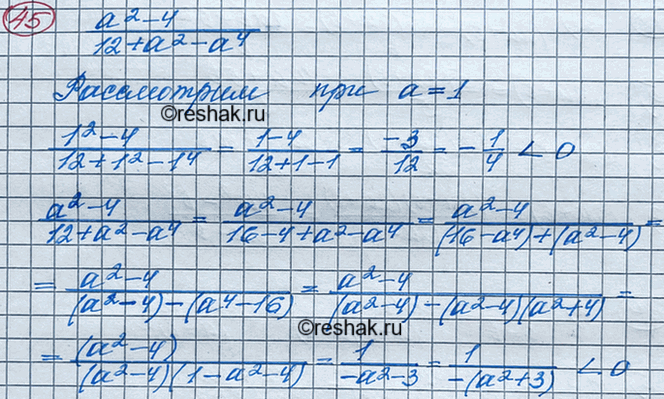 45 (a² - 4)/(12 + a² - a⁴)
Рассмотрим при a = 1
reshak.ru
(1² - 4)/(12 + 1² - 1⁴) = (1 - 4)/(12 + 1 - 1) = (-3)/12 = -1/4 < 0
(a² - 4)/(12 + a² - a⁴) = (a² - 4)/(16 - 4 + a² - a⁴) = (a² - 4)/((16 - a⁴) + (a² - 4)) =
= (a² - 4)/((a² - 4) - (a⁴ - 16)) = (a² - 4)/((a² - 4) - (a² - 4)(a² + 4)) =
reshak.ru
= (a² - 4)/((a² - 4)(1 - a² - 4)) = 1/(-a² - 3) = 1/(-(a² + 3)) < 0